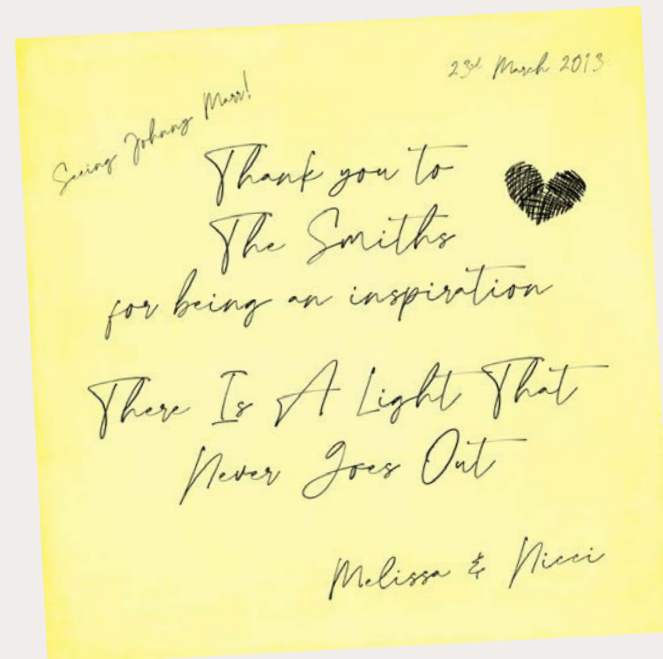 23rd March 2013
Seeing Johnny Marr!
Thank you to
The Smiths
for being an inspiration
There Is A Light That
Never Goes Out
Melissa & Nicci